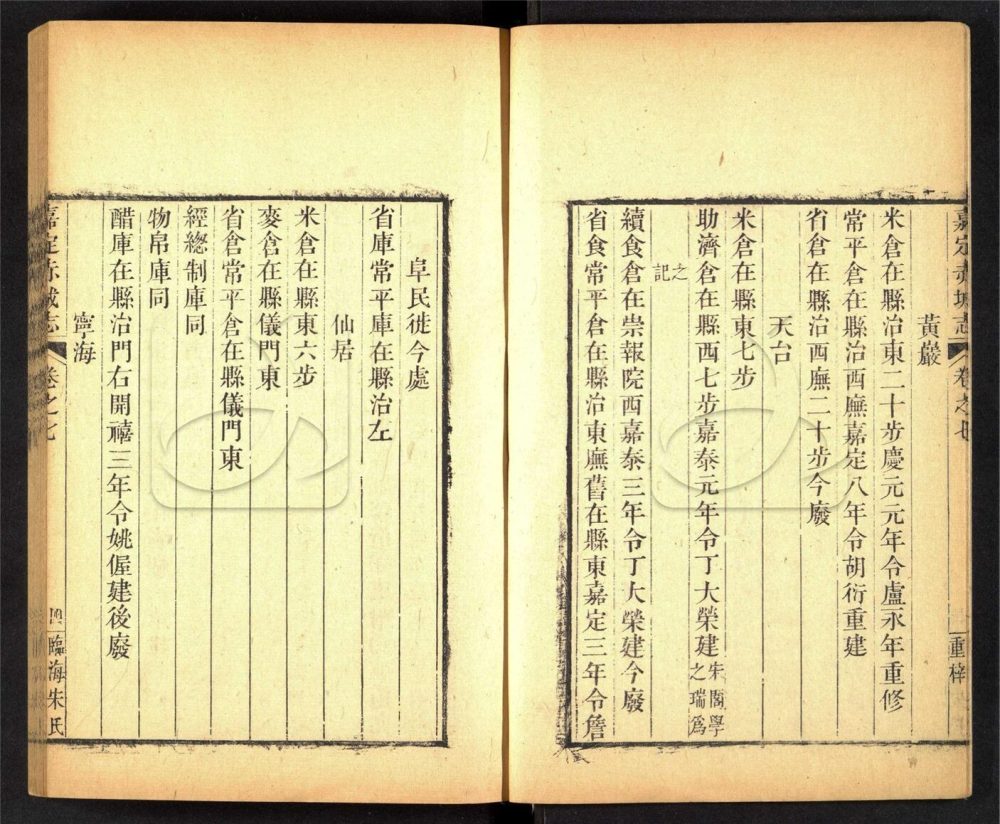 嘉定赤城志 卷之七 重梓
黃巖
米倉在縣治東二十步慶元元年令盧永年重修
常平倉在縣治西廡嘉定八年令胡衍重建
省倉在縣治西廡二十步今廢
天台
米倉在縣東七步
助濟倉在縣西七步嘉泰元年令丁大榮建朱閣學之瑞爲
之記
續食倉在崇報院西嘉泰三年令丁大榮建今廢
省食常平倉在縣治東廡舊在縣東嘉定三年令詹
阜民徙今處
省庫常平庫在縣治左
仙居
米倉在縣東六步
麥倉在縣儀門東
省倉常平倉在縣儀門東
經總制庫同
物帛庫同
醋庫在縣治門右開禧三年令姚偓建後廢
寧海
嘉定赤城志 卷之七 臨海朱氏